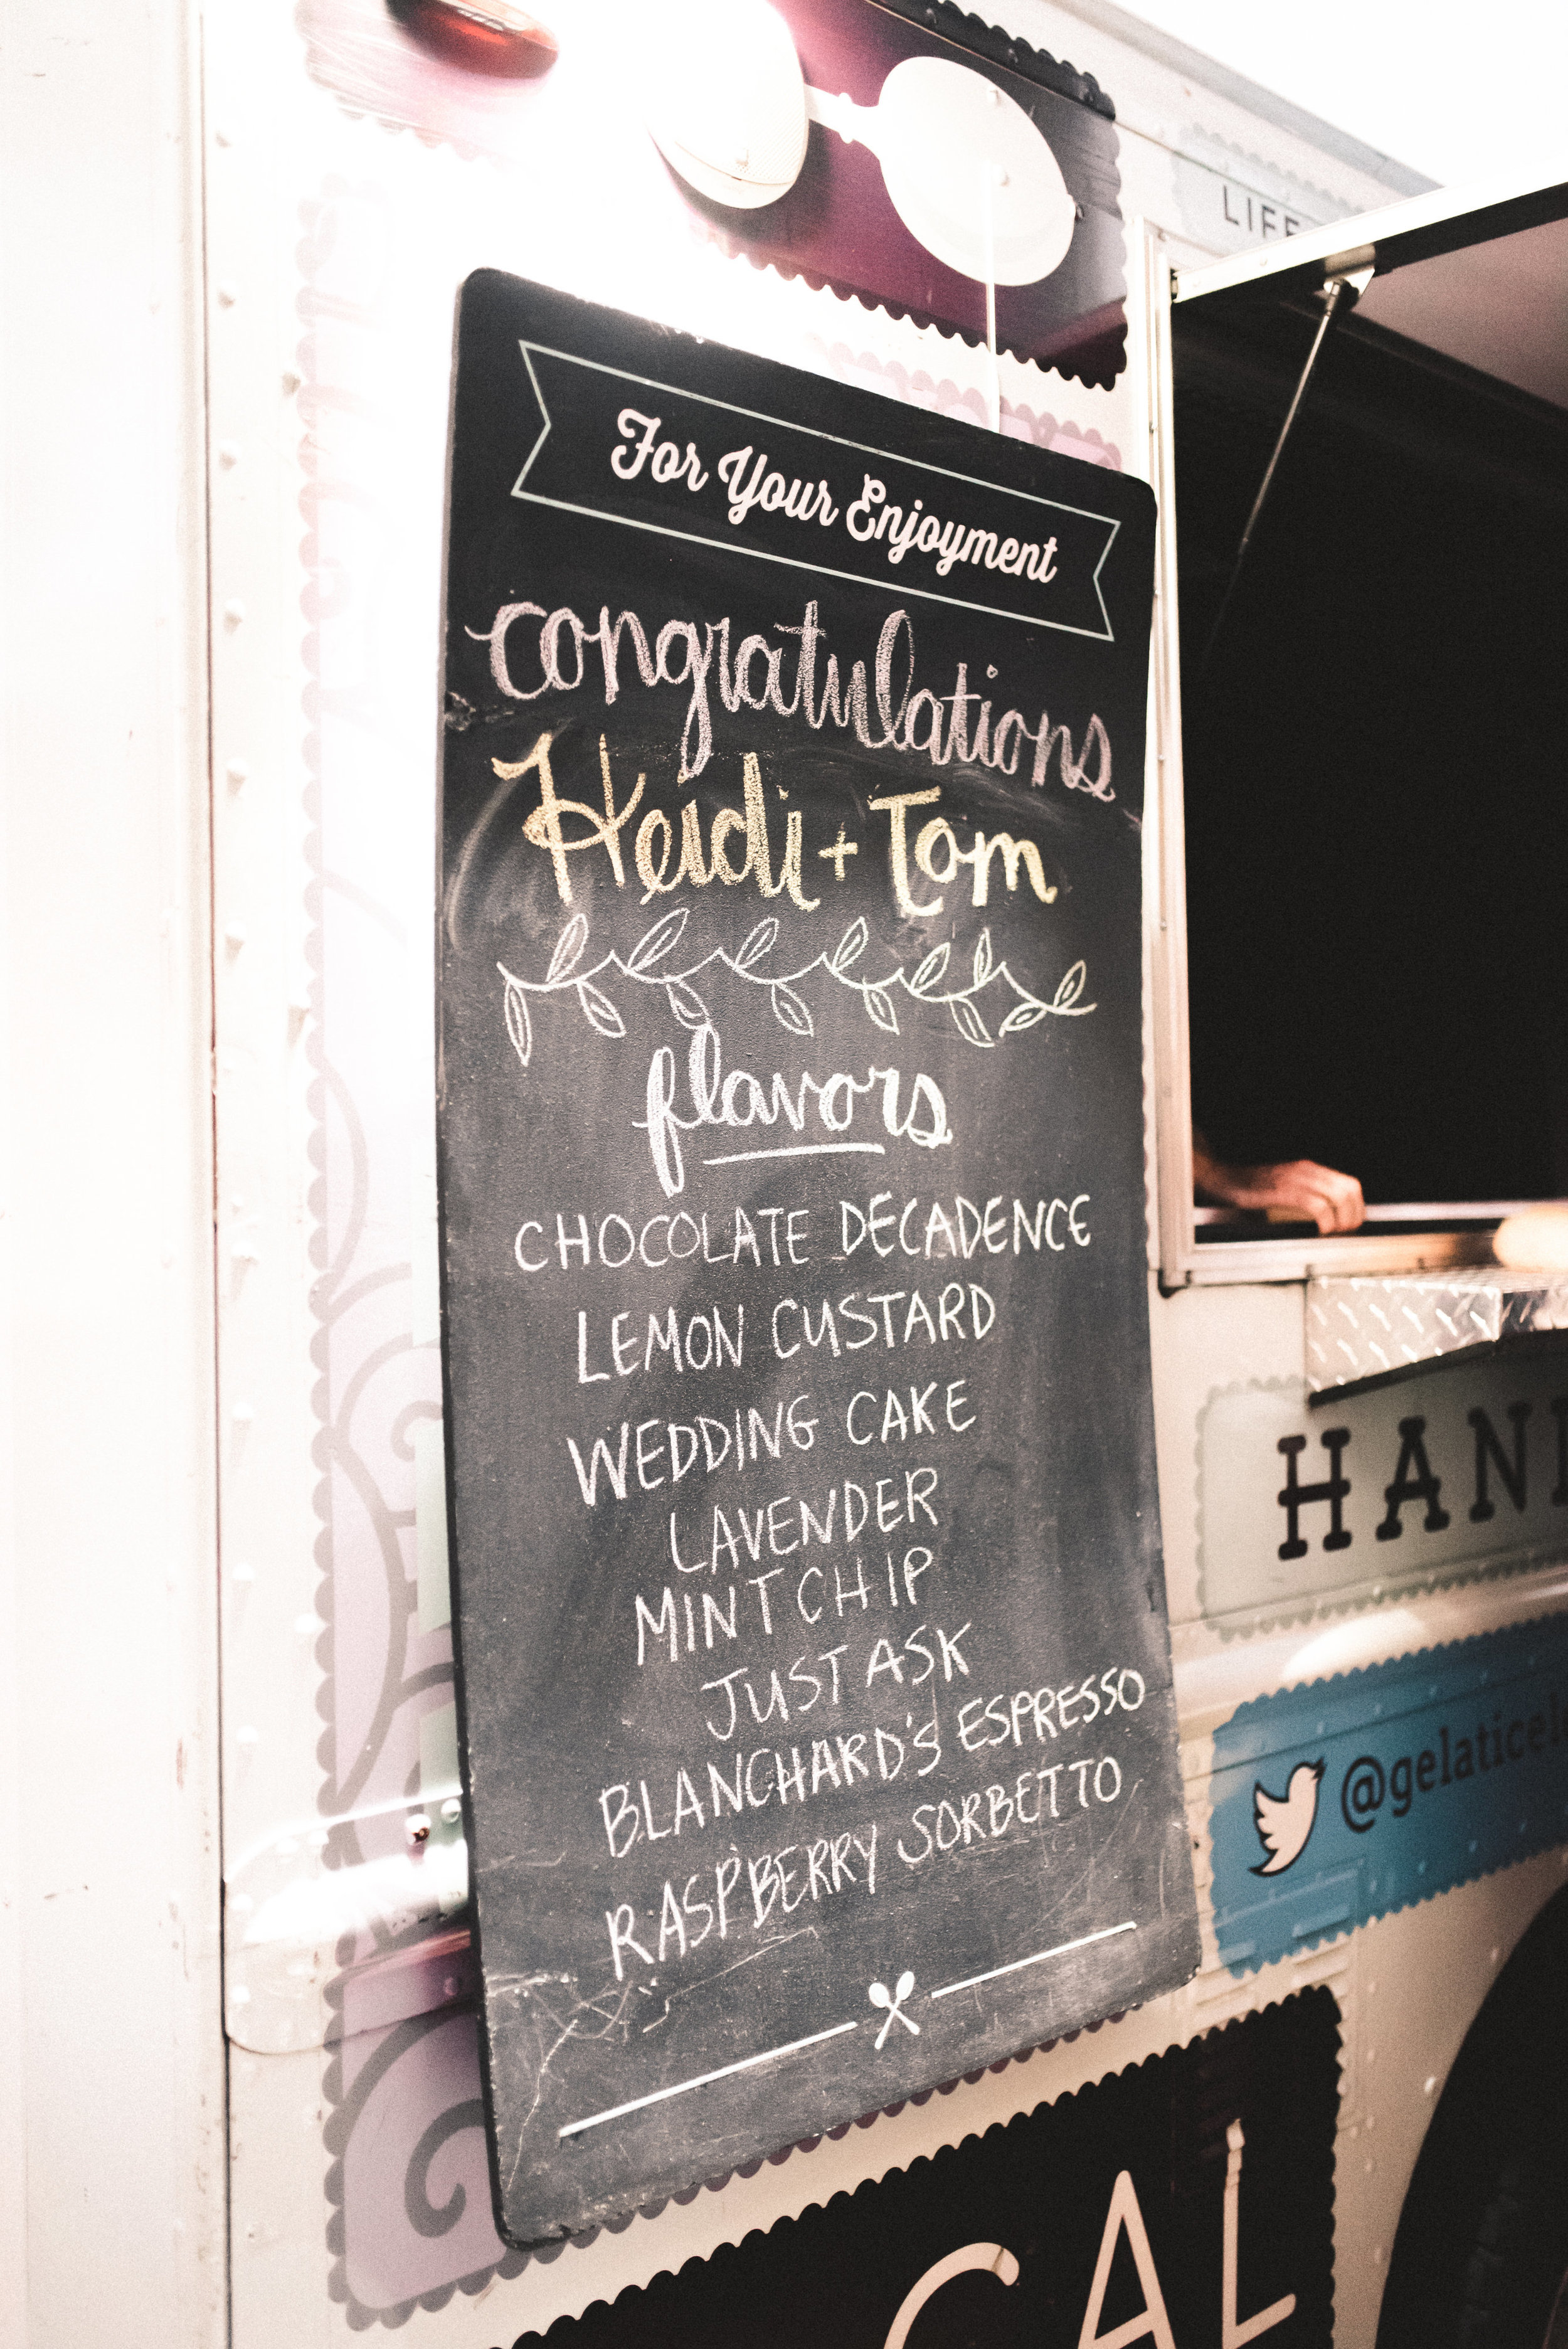 LIFE
For Your Enjoyment
congratulations
Heidi + Tom
flavors
CHOCOLATE DECADENCE
LEMON CUSTARD
WEDDING CAKE
LAVENDER
MINT CHIP
JUST ASK
BLANCHARD'S ESPRESSO
RASPBERRY SORBETTO
HAN
@gelatice
CAL